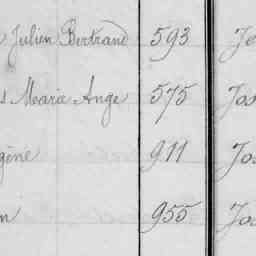 Julien Bertrand 593 Jo
s Marie Ange 575 Jos
gène 911 Jos
n 955 Jos